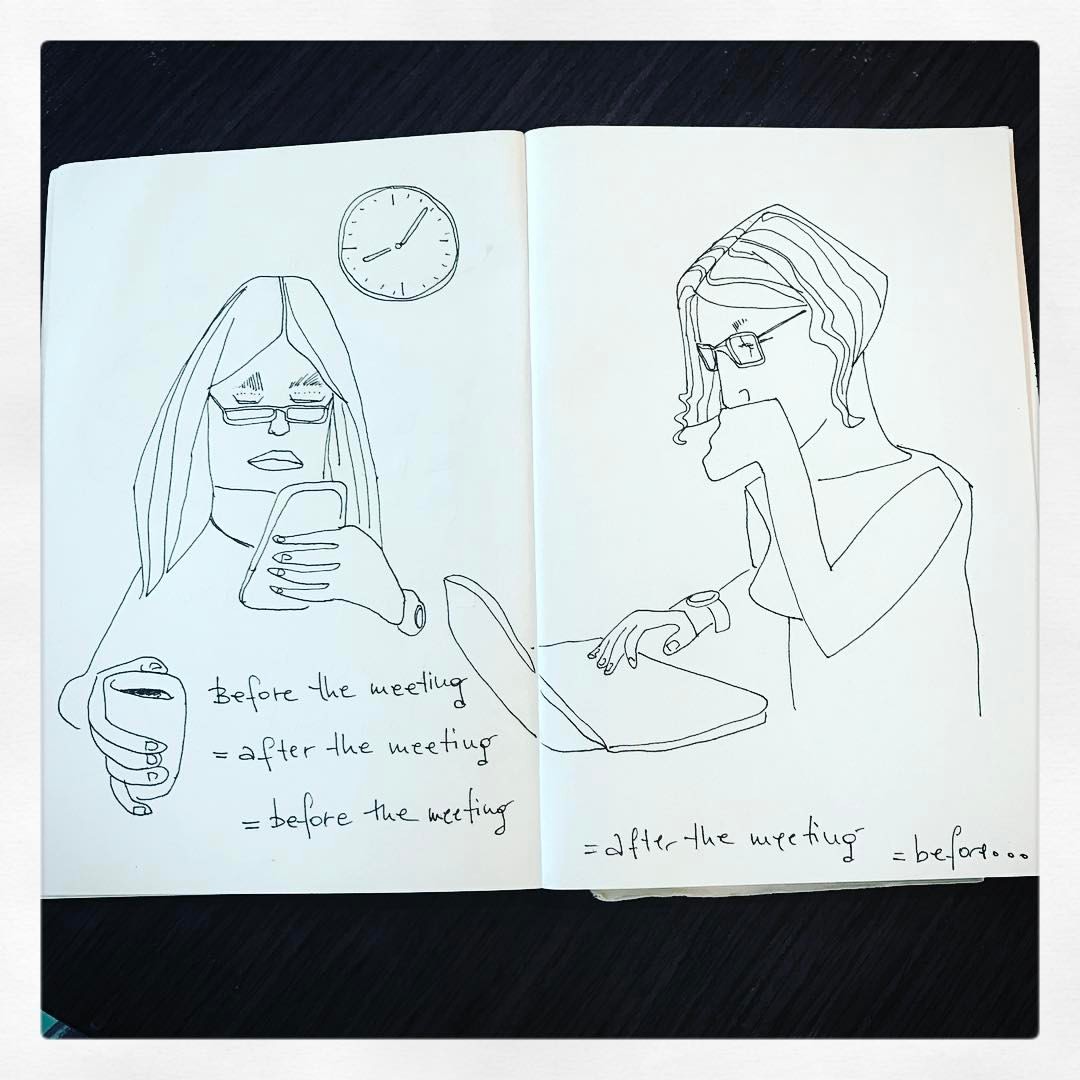 Before the meeting
= after the meeting
= before the meeting
= after the meeting = before...